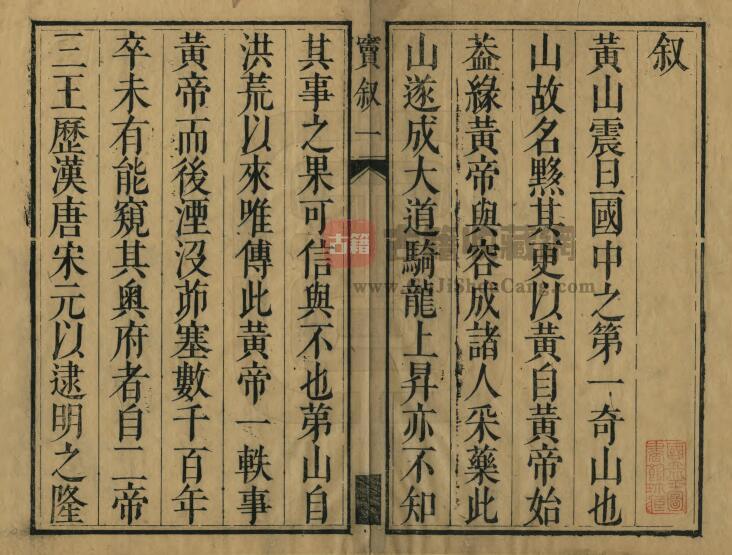 叙
黃山震旦國中之第一奇山也
山故名黟其更以黃自黃帝始
葢緣黃帝與容成諸人采藥此
山遂成大道騎龍上昇亦不知
竇叙一
其事之果可信與不也苐山自
洪荒以來唯傳此黃帝一軼事
黃帝而後湮沒茆塞數千百年
卒未有能窺其奧府者自二帝
三王歷漢唐宋元以逮明之隆
古籍
www.GuJiShuCang.com